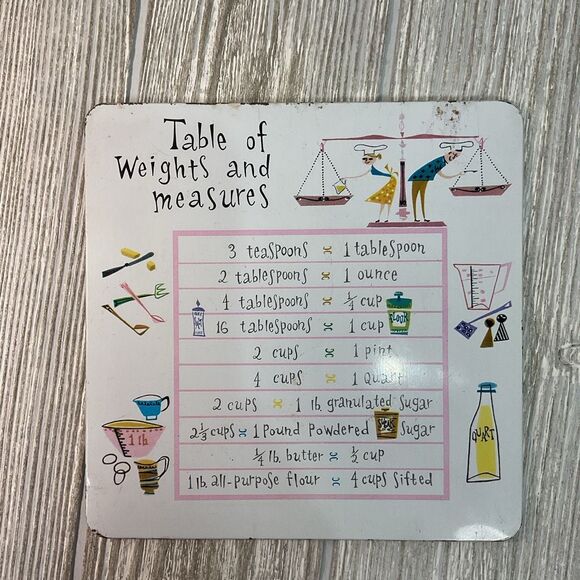 Table of
Weights and
measures
3 teaspoons = 1 tablespoon
2 tablespoons = 1 ounce
4 tablespoons = 1/4 cup
16 tablespoons = 1 cup
FLOUR
2 cups = 1 pint
4 cups = 1 quart
2 cups = 1 lb. granulated sugar
2 1/3 cups = 1 Pound Powdered Sugar
1/4 lb. butter = 1/2 cup
1 lb. all-purpose flour = 4 cups sifted
1 lb.
QUART